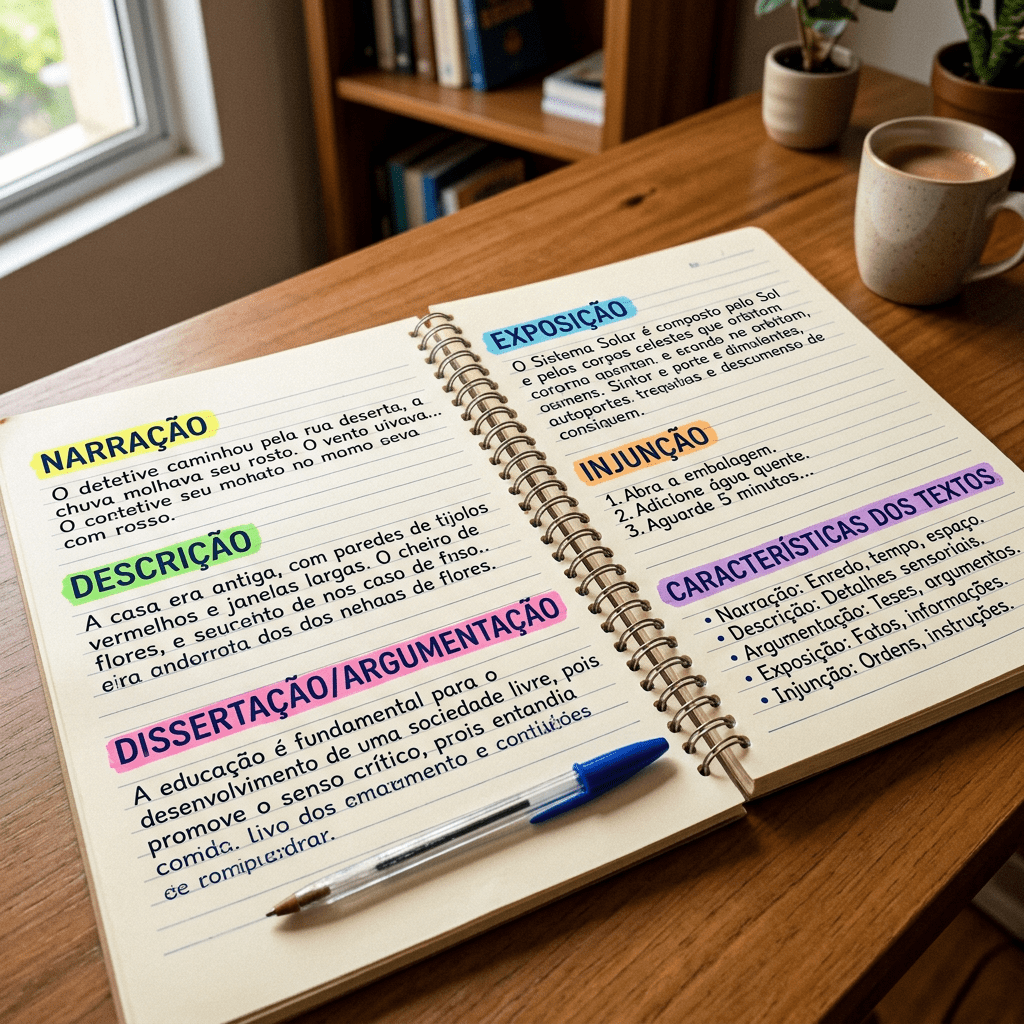 NARRAÇÃO
O detetive caminhou pela rua deserta, a
chuva molhava seu rosto. O vento uivava...
O contetive seu mohato no momo seva
com rosso.
DESCRIÇÃO
A casa era antiga, com paredes de tijolos
vermelhos e janelas largas. O cheiro de
flores, e seucento de nos caso de fnso..
eira andorrata dos dos nehaas de flores.
DISSERTAÇÃO/ARGUMENTAÇÃO
A educação é fundamental para o
desenvolvimento de uma sociedade livre, pois
promove o senso crítico, prois entandia
comida. Livo dos emarzamento e
de
EXPOSIÇÃO
O Sistema Solar é composto pelo Sol
e pelos corpos celestes que orbitam
cororno e erando ne orbitam,
Sintor e porte e dimalentes,
autoportes, e descumenso de
consiquem.
INJUNÇÃO
1. Abra a embalagem.
2. Adicione água quente.
3. Aguarde 5 minutos...
CARACTERÍSTICAS DOS TEXTOS
• Narração: Enredo, tempo, espaço.
• Descrição: Detalhes sensoriais.
• Argumentação: Teses, argumentos.
• Exposição: Fatos, informações.
• Injunção: Ordens, instruções.